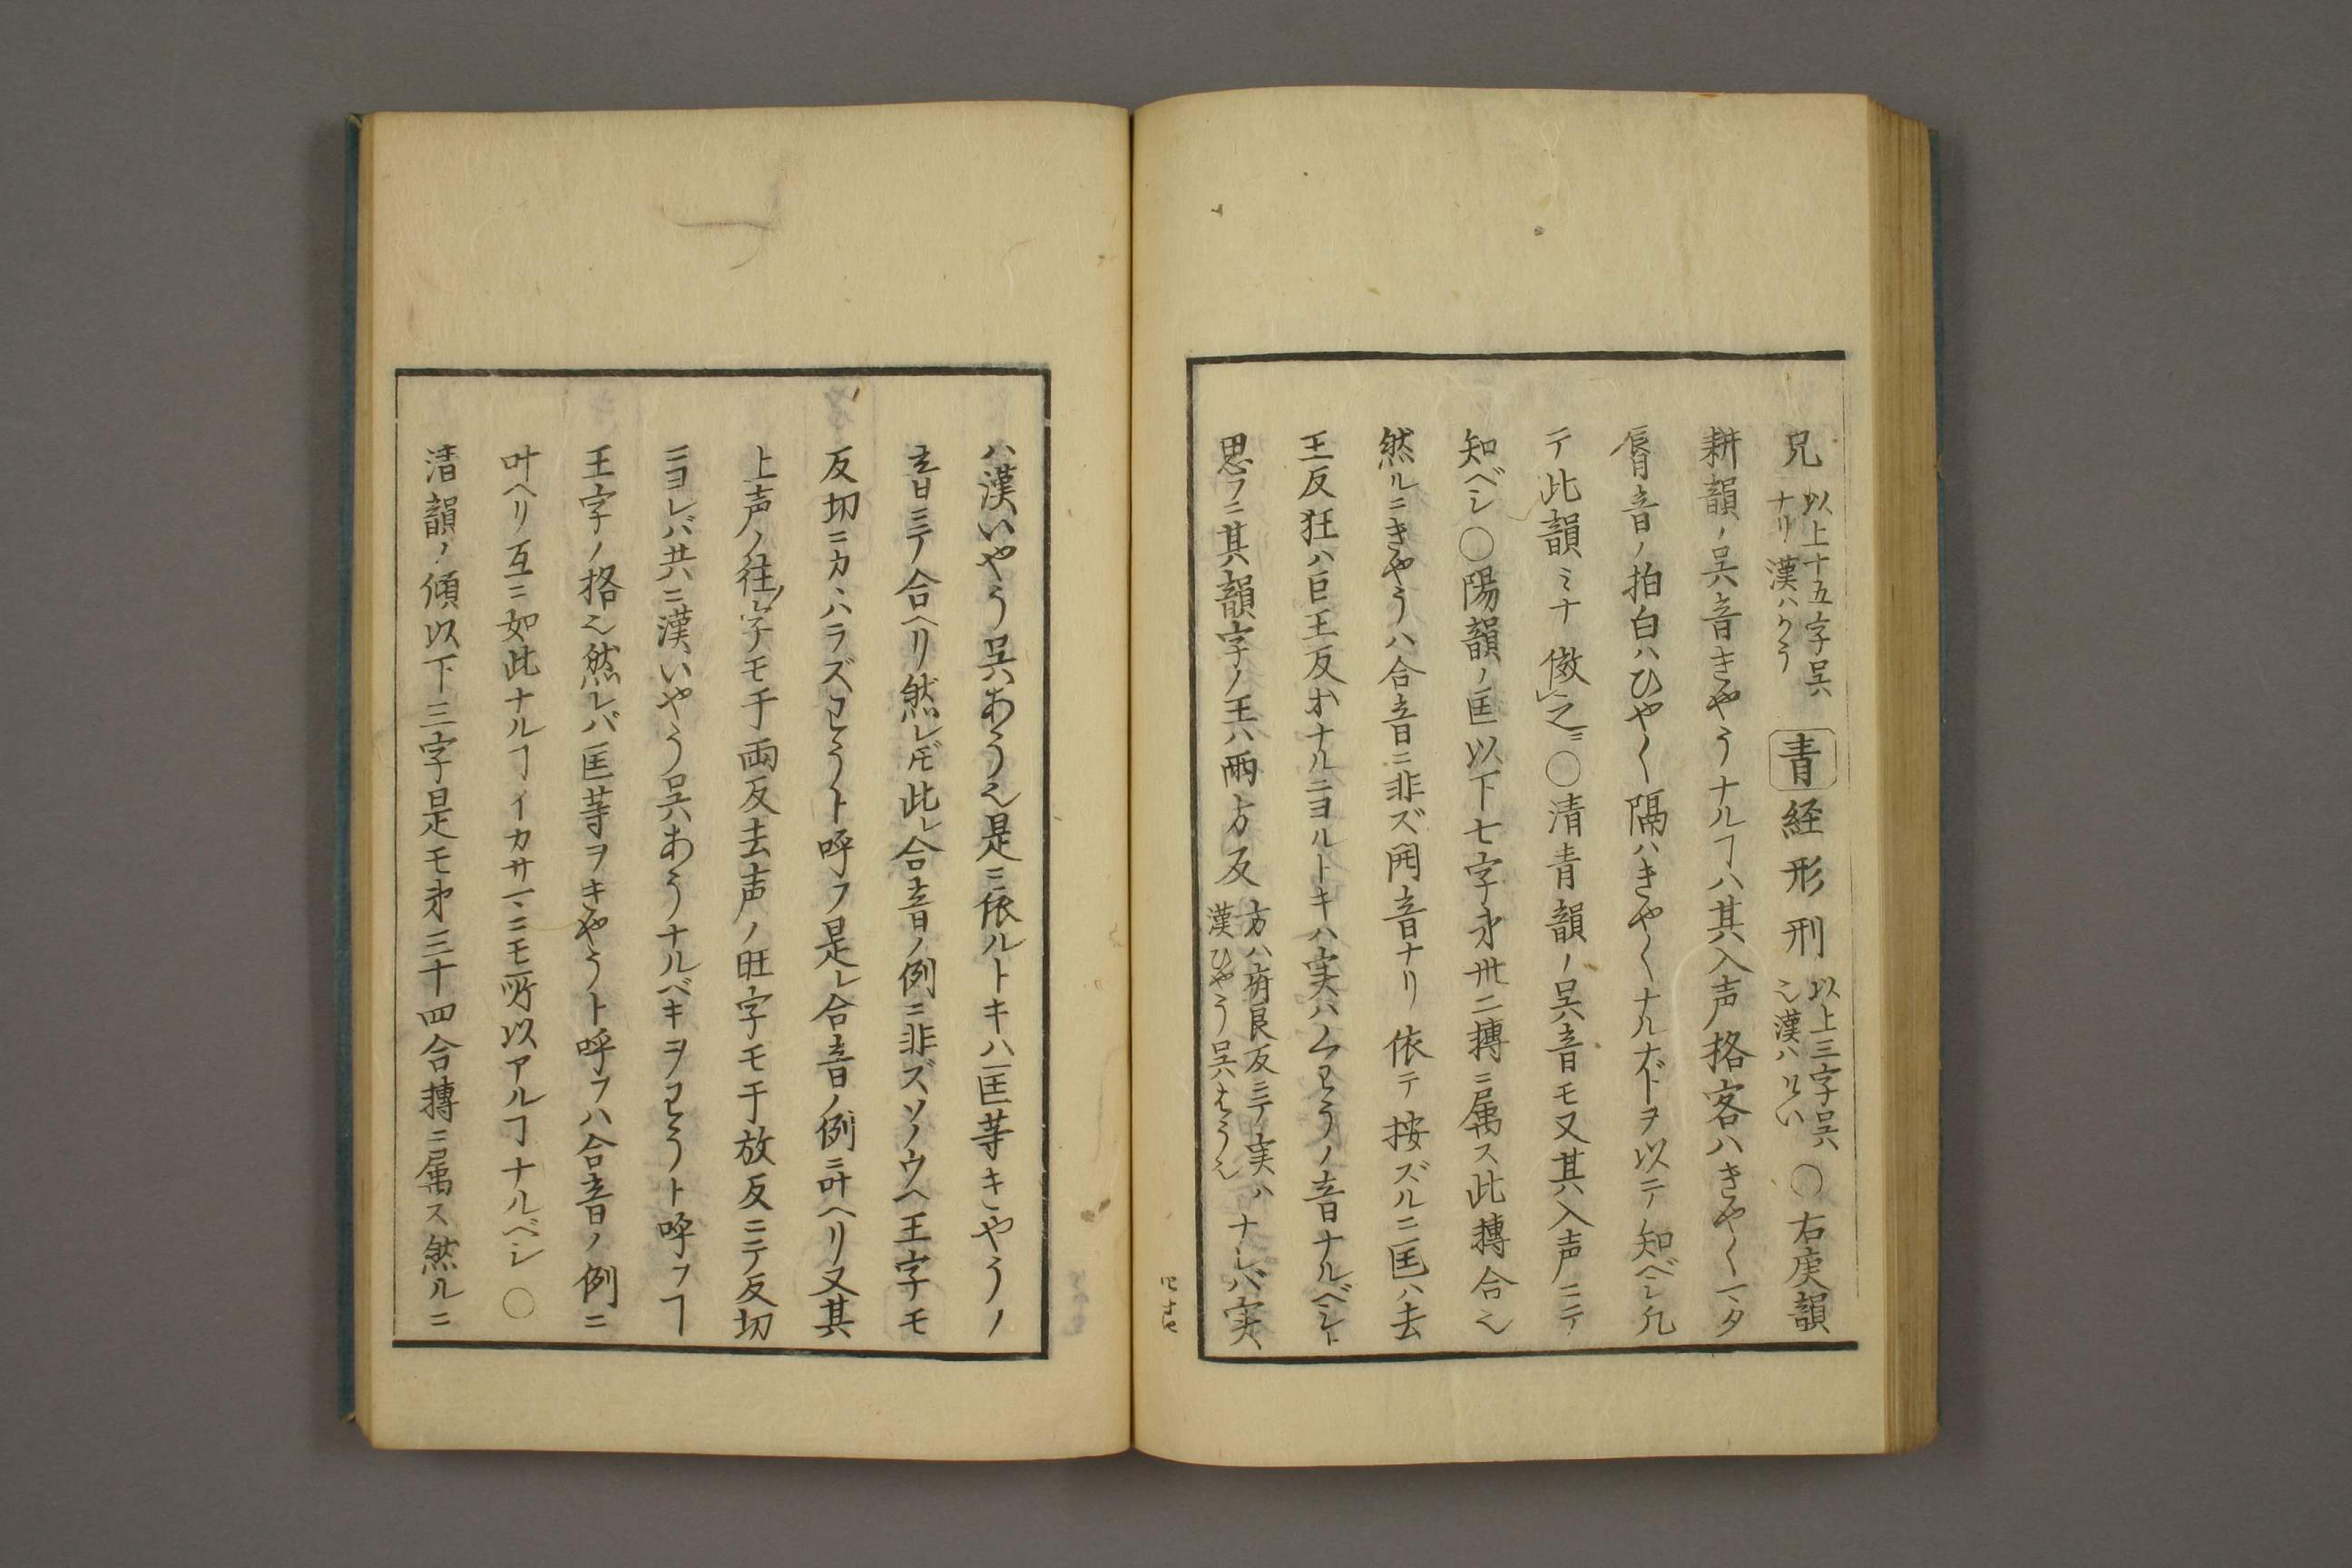 兄 以上十五字呉ハ
ナリ漢ハけう 青 経 形 刑 以上三字呉ハ
也漢ハけい ○右庚韻
耕韻ノ呉音きやうナルヿハ其入声格客ハきやく一、タ
脣音ノ拍白ハひやく隔ハきやくナルナドヲ以テ知ベシ凡
テ此韻ミナ倣レ之ニ○清青韻ノ呉音モ又其入声ニテ
知ベシ○陽韻ノ匡以下七字㐧卅二轉ニ属ス此轉合也
然ルニきやうハ合音ニ非ズ開音ナリ依テ按ズルニ匡ハ去
王反狂ハ巨王反ナルニヨルトキハ実ハくわうノ音ナルベシト
思フニ其韻字ノ王ハ雨方反 方ハ府良反ニテ実ハ
漢ひやう呉はう也 ナレバ実、
ハ漢いやう呉あう也是ニ依ルトキハ匡等きやうノ
音ニテ合ヘリ然レ𪜈此レ合音ノ例ニ非ズソノウヘ王字モ
反切ニカヽハラズわうト呼フ是レ合音ノ例ニ叶ヘリ又其
上声ノ往字モ于両反去声ノ旺字モ于放反ニテ反切
ニヨレバ共ニ漢いやう呉あうナルベキヲわうト呼フヿ
王字ノ格也然レバ匡等ヲきやうト呼フハ合音ノ例ニ
叶ヘリ互ニ如此ナルヿイカサマニモ所以アルヿナルベシ○
清韻ノ傾以下三字是モ㐧三十四合轉ニ属ス然ルニ